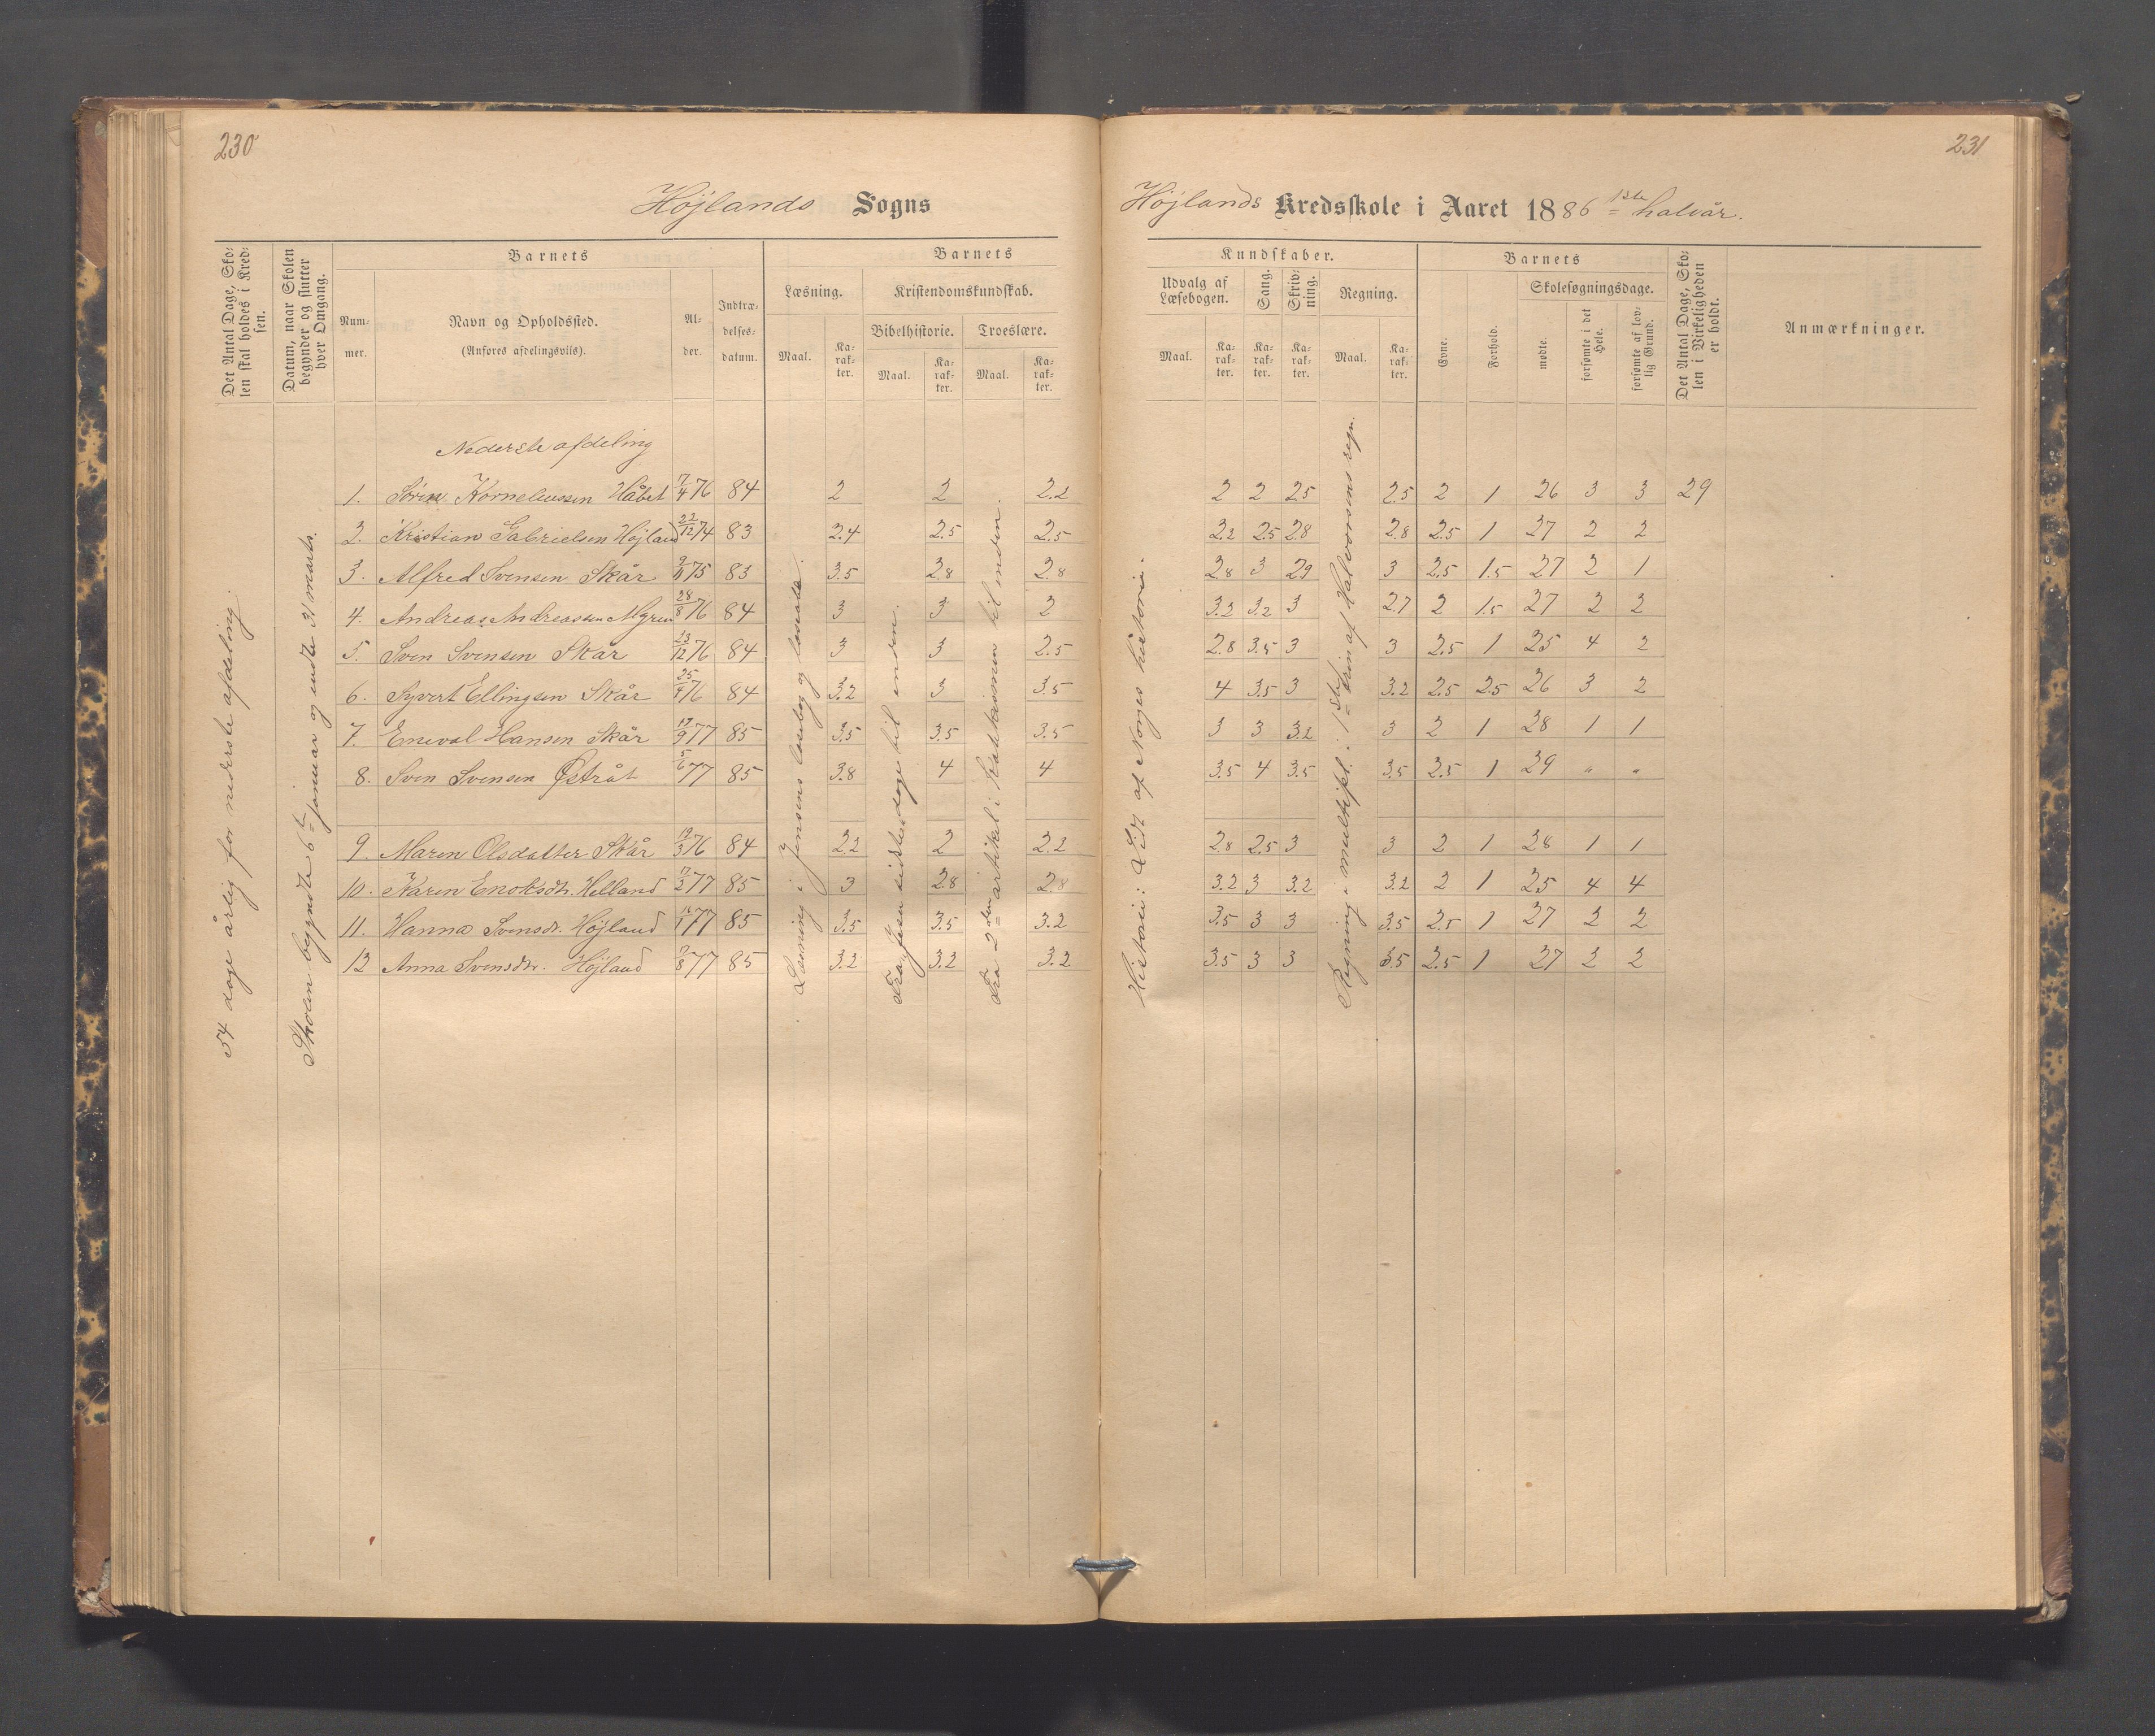 230
231
Højlands Sogns
Højlands Kredsskole i Aaret 1886 1ste halvår.
Det Antal Dage, Sko-
len skal holdes i Kred-
sen.
Datum, naar Skolen
begynder og slutter
hver Omgang.
Barnets
Num-
mer.
Navn og Opholdssted.
(Anføres afdelingsvils).
Al-
der.
Indtræ-
delses-
datum.
Barnets
Læsning.
Kristendomskundskab.
Bibelhistorie.
Troeslære.
Maal.
Ka-
rak-
ter.
Maal.
Ka-
rak-
ter.
Maal.
Ka-
rak-
ter.
Kundskaber.
Udvalg af
Læsebogen.
Sang.
Skriv-
ning.
Regning.
Maal.
Ka-
rak-
ter.
Ka-
rak-
ter.
Ka-
rak-
ter.
Maal.
Ka-
rak-
ter.
Barnets
Evne.
Forhold.
Skolesøgningsdage.
mødte.
forsømte i det
Hele.
forsømte af lov-
lig Grund.
Det Antal Dage, Sko-
len i Virkeligheden
er holdt.
Anmærkninger.
54 dage årlig for nederste afdeling.
Skolen begyndte 6te januar og endte 31 marts.
Læsning i Jensens læsebog og læsestk.
Fra Jesu sidste dage til enden.
Fra 2den artikel i Katekismen til enden.
Historie: Lidt af Norges historie.
Regning i multipl. 1ste trin af Halvorsens regn.
Nederste afdeling
1. Sören Korneliussen Håbet 7/4 76 84 2 2 2.2 2 2 2.5 2.5 2 1 26 3 3 29
2. Kristian Gabrielsen Højland 22/12 74 83 2.4 2.5 2.5 2.2 2.5 2.8 2.8 2.5 1 27 2 2
3. Alfred Svensen Skår 9/11 75 83 3.5 2.8 2.8 2.8 3 2.9 3 2.5 1.5 27 2 1
4. Andreas Andreassen Myren 28/8 76 84 3 3 2 3.2 3.2 3 2.7 2 1.5 27 2 2
5. Sven Svensen Skår 13/12 76 84 3 3 2.5 2.8 3.5 3 3 2.5 1 25 4 2
6. Syvert Ellingsen Skår 25/9 76 84 3.2 3 3.5 4 3.5 3 3.2 2.5 2.5 26 3 2
7. Eneval Hansen Skår 19/9 77 85 3.5 3.5 3.5 3 3 3.2 3 2 1 28 1 1
8. Sven Svensen Østråt 5/6 77 85 3.8 4 4 3.5 4 3.5 3.5 2.5 1 29 " "
9. Maren Olsdatter Skår 19/3 76 84 2.2 2 2.2 2.8 2.5 3 3 2 1 28 1 1
10. Karen Enoksdtr. Helland 17/2 77 85 3 2.8 2.8 3.2 3 3.2 3.2 2 1 25 4 4
11. Hanna Svensdtr. Højland 16/1 77 85 3.5 3.5 3.2 3.5 3 3 3.5 2.5 1 27 2 2
12 Anna Svensdtr. Højland 7/8 77 85 3.2 3.2 3.2 3.5 3 3 3.5 2.5 1 27 2 2